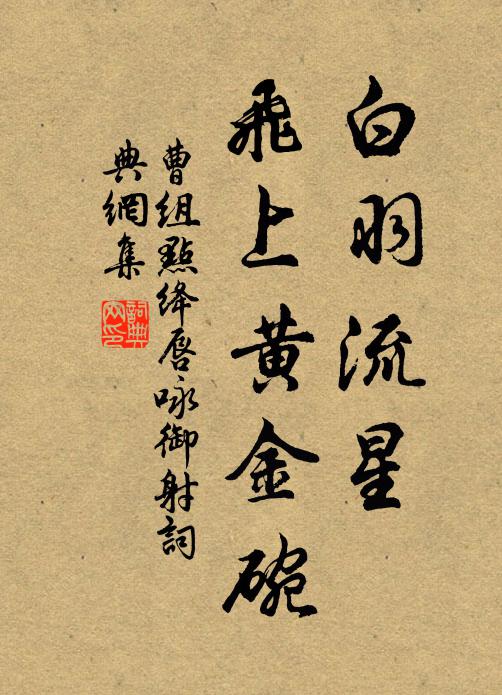 白羽流星
飛上黃金碗
曹組點絳唇咏御射詞
典網集
詞典
网印